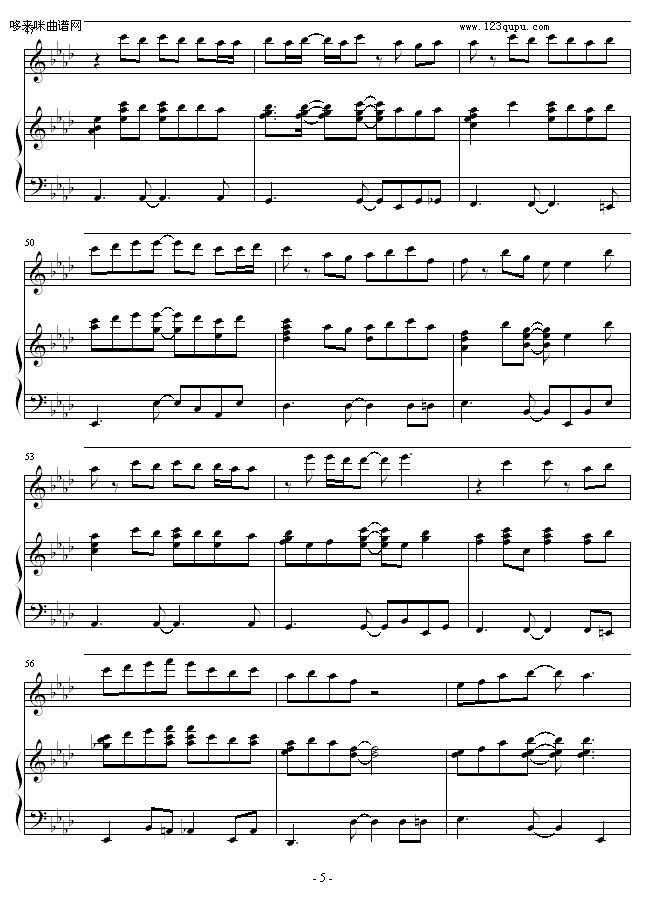 哆来咪曲谱网
www.123qupu.com
50
53
56
- 5 -